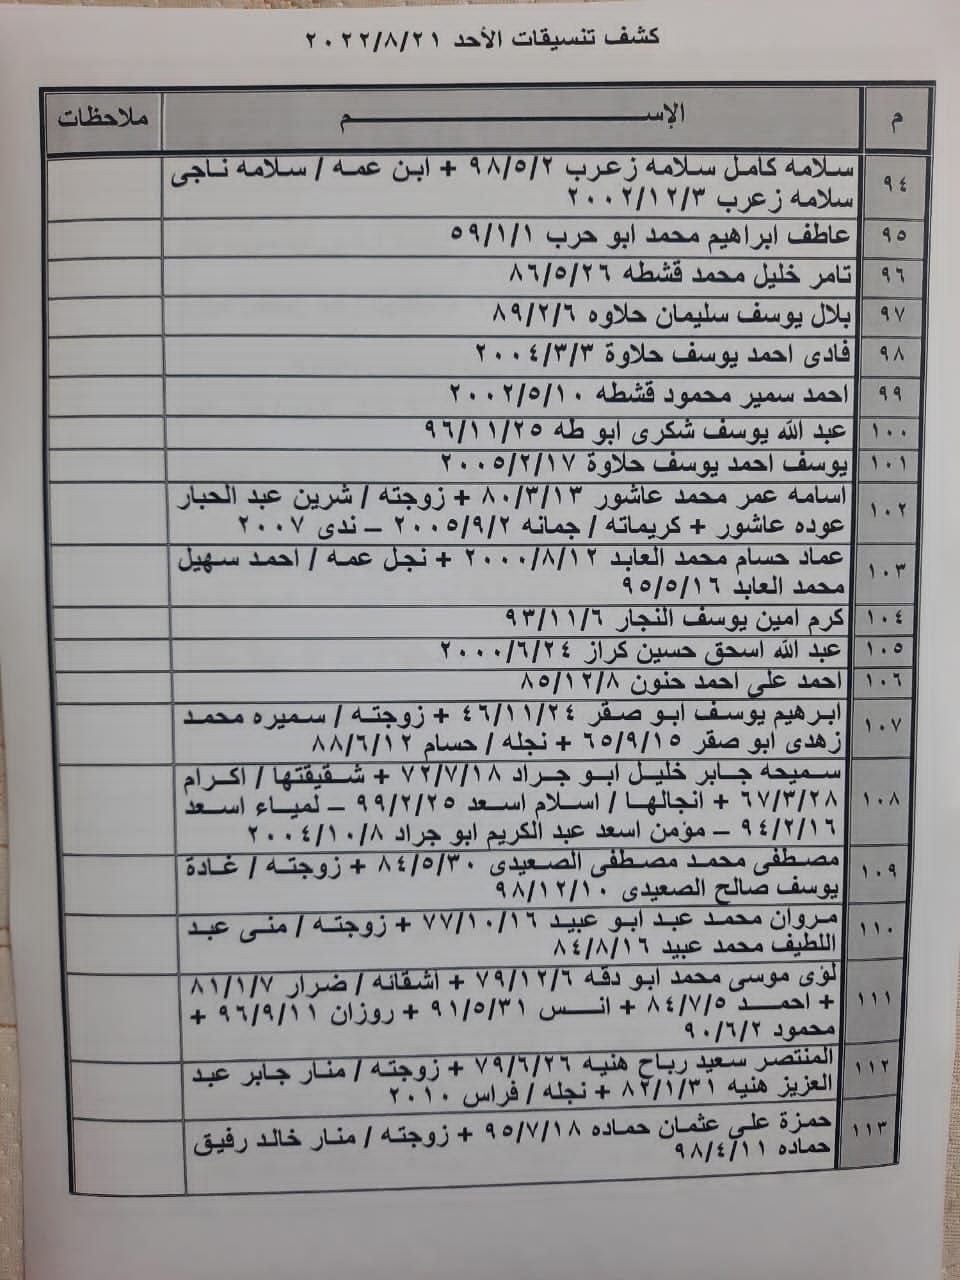 كشف تنسيقات الأحد ٢٠٢٢/٨/٢١
م الإســـــــــم ملاحظات
٩٤ سلامه كامل سلامه زعرب ٩٨/٥/٢ + ابن عمه / سلامه ناجى
سلامه زعرب ٢٠٠٢/١٢/٣
٩٥ عاطف ابراهيم محمد ابو حرب ٥٩/١/١
٩٦ تامر خليل محمد قشطه ٨٦/٥/٢٦
٩٧ بلال يوسف سليمان حلاوه ٨٩/٢/٦
٩٨ فادى احمد يوسف حلاوة ٢٠٠٤/٣/٣
٩٩ احمد سمير محمود قشطه ٢٠٠٢/٥/١٠
١٠٠ عبد الله يوسف شكرى ابو طه ٩٦/١١/٢٥
١٠١ يوسف احمد يوسف حلاوة ٢٠٠٥/٢/١٧
١٠٢ اسامه عمر محمد عاشور ٨٠/٣/١٣ + زوجته / شرين عبد الحبار
عوده عاشور + كريماته / جمانه ٢٠٠٥/٩/٢ – ندى ٢٠٠٧
١٠٣ عماد حسام محمد العابد ٢٠٠٠/٨/١٢ + نجل عمه / احمد سهيل
محمد العابد ٩٥/٥/١٦
١٠٤ كرم امين يوسف النجار ٩٣/١١/٦
١٠٥ عبد الله اسحق حسين كراز ٢٠٠٠/٦/٢٤
١٠٦ احمد على احمد حنون ٨٥/١٢/٨
١٠٧ ابرهيم يوسف ابو صقر ٤٦/١١/٢٤ + زوجته / سميره محمد
زهدى ابو صقر ٦٥/٩/١٥ + نجله / حسام ٨٨/٦/١٢
١٠٨ سميحه جابر خليل ابو جراد ٧٢/٧/١٨ + شقيقتها / اكرام
٦٧/٣/٢٨ + انجالها / اسلام اسعد ٩٩/٢/٢٥ – لمياء اسعد
٩٤/٢/١٦ – مؤمن اسعد عبد الكريم ابو جراد ٢٠٠٤/١٠/٨
١٠٩ مصطفى محمد مصطفى الصعيدى ٨٤/٥/٣٠ + زوجته / غادة
يوسف صالح الصعيدى ٩٨/١٢/١٠
١١٠ مروان محمد عبد ابو عبيد ٧٧/١٠/١٦ + زوجته / منى عبد
اللطيف محمد عبيد ٨٤/٨/١٦
١١١ لؤى موسى محمد ابو دقه ٧٩/١٢/٦ + اشقائه / ضرار ٨١/١/٧
+ احمد ٨٤/٧/٥ + انس ٩١/٥/٣١ + روزان ٩٦/٩/١١ +
محمود ٩٠/٦/٢
١١٢ المنتصر سعيد رباح هنيه ٧٩/٦/٢٦ + زوجته / منار جابر عبد
العزيز هنيه ٨٢/١/٣١ + نجله / فراس ٢٠١٠
١١٣ حمزة على عثمان حماده ٩٥/٧/١٨ + زوجته / منار خالد رفيق
حماده ٩٨/٤/١١